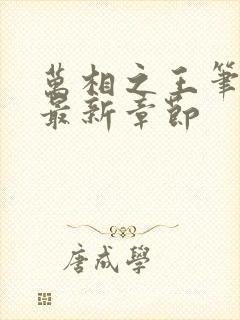 萬相之王筆
最新章節
唐成學